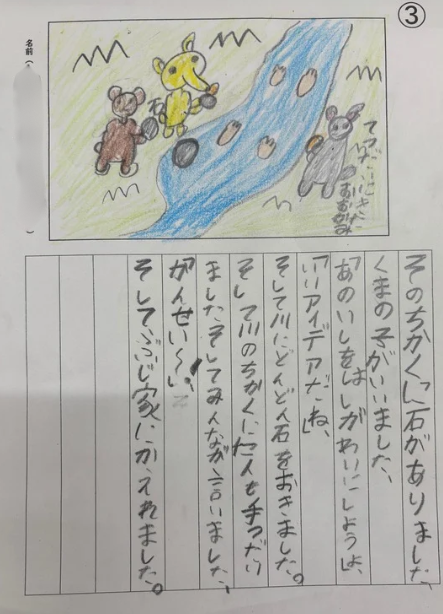 ③
名前(
てつだいにきた
おおかみ
そのちかくに石がありました
くまの子がいいました、
「あのいしをはしがわりにしようよ、」
「いいアイデアだね、」
そして川にどんどん石をおきました。
そして川のちかくにたん
ました、そしてみんなが言いました、
「がんせい〜い、
そしてぶじ家にかえれました。